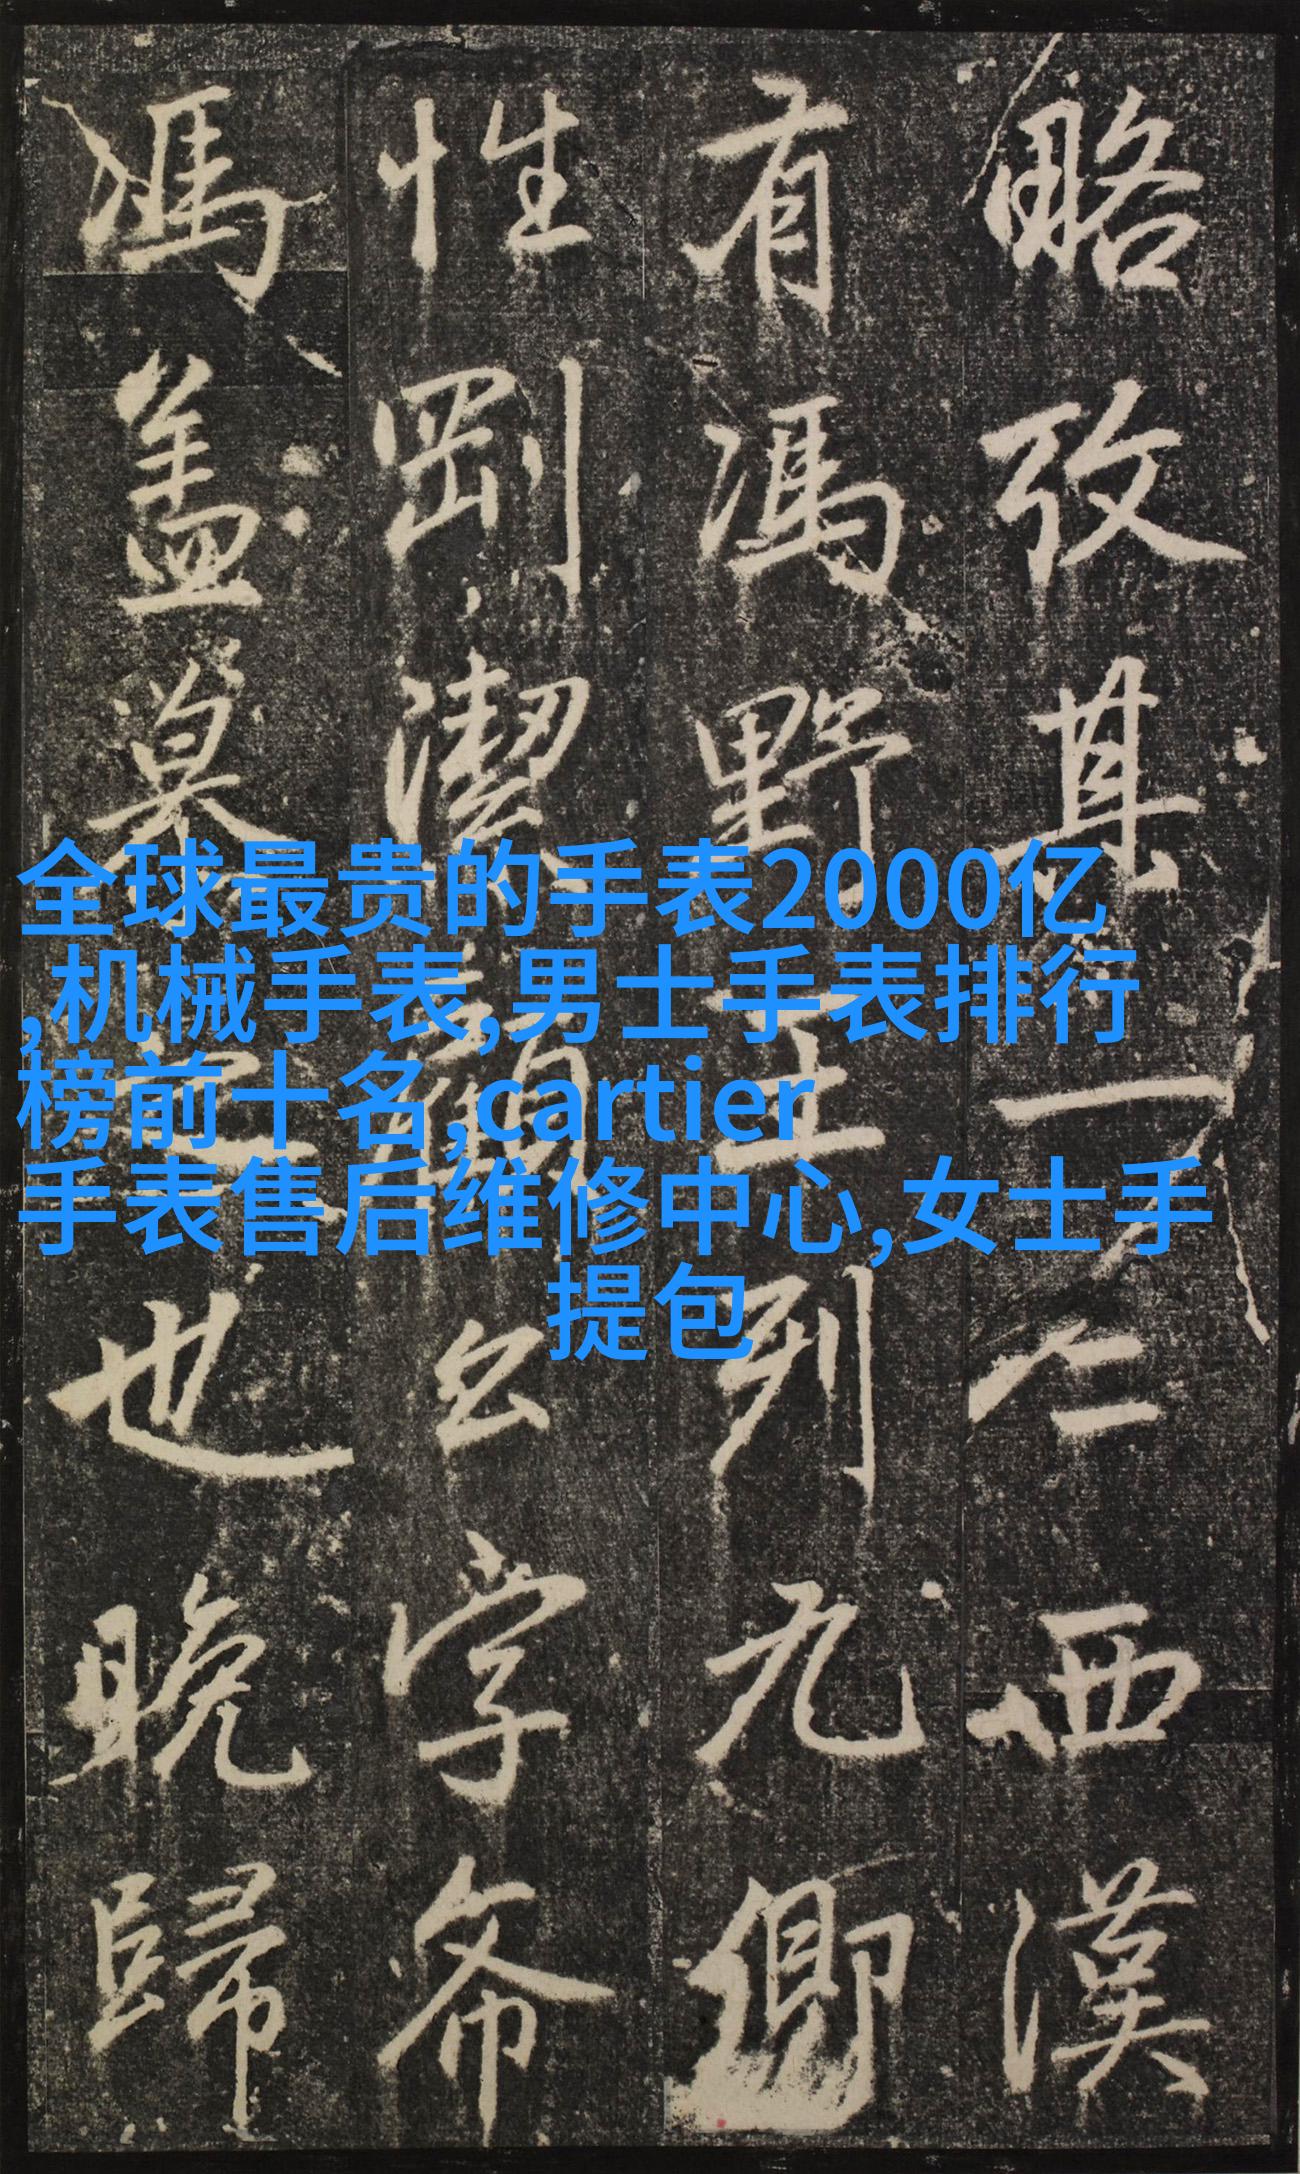 略攷其一二西漢
有馮野王列九卿
性剛潔顧公字希
馮蓋慕之也晚歸
全球最贵的手表2000亿
,机械手表,男士手表排行
榜前十名,cartier
手表售后维修中心,女士手
提包